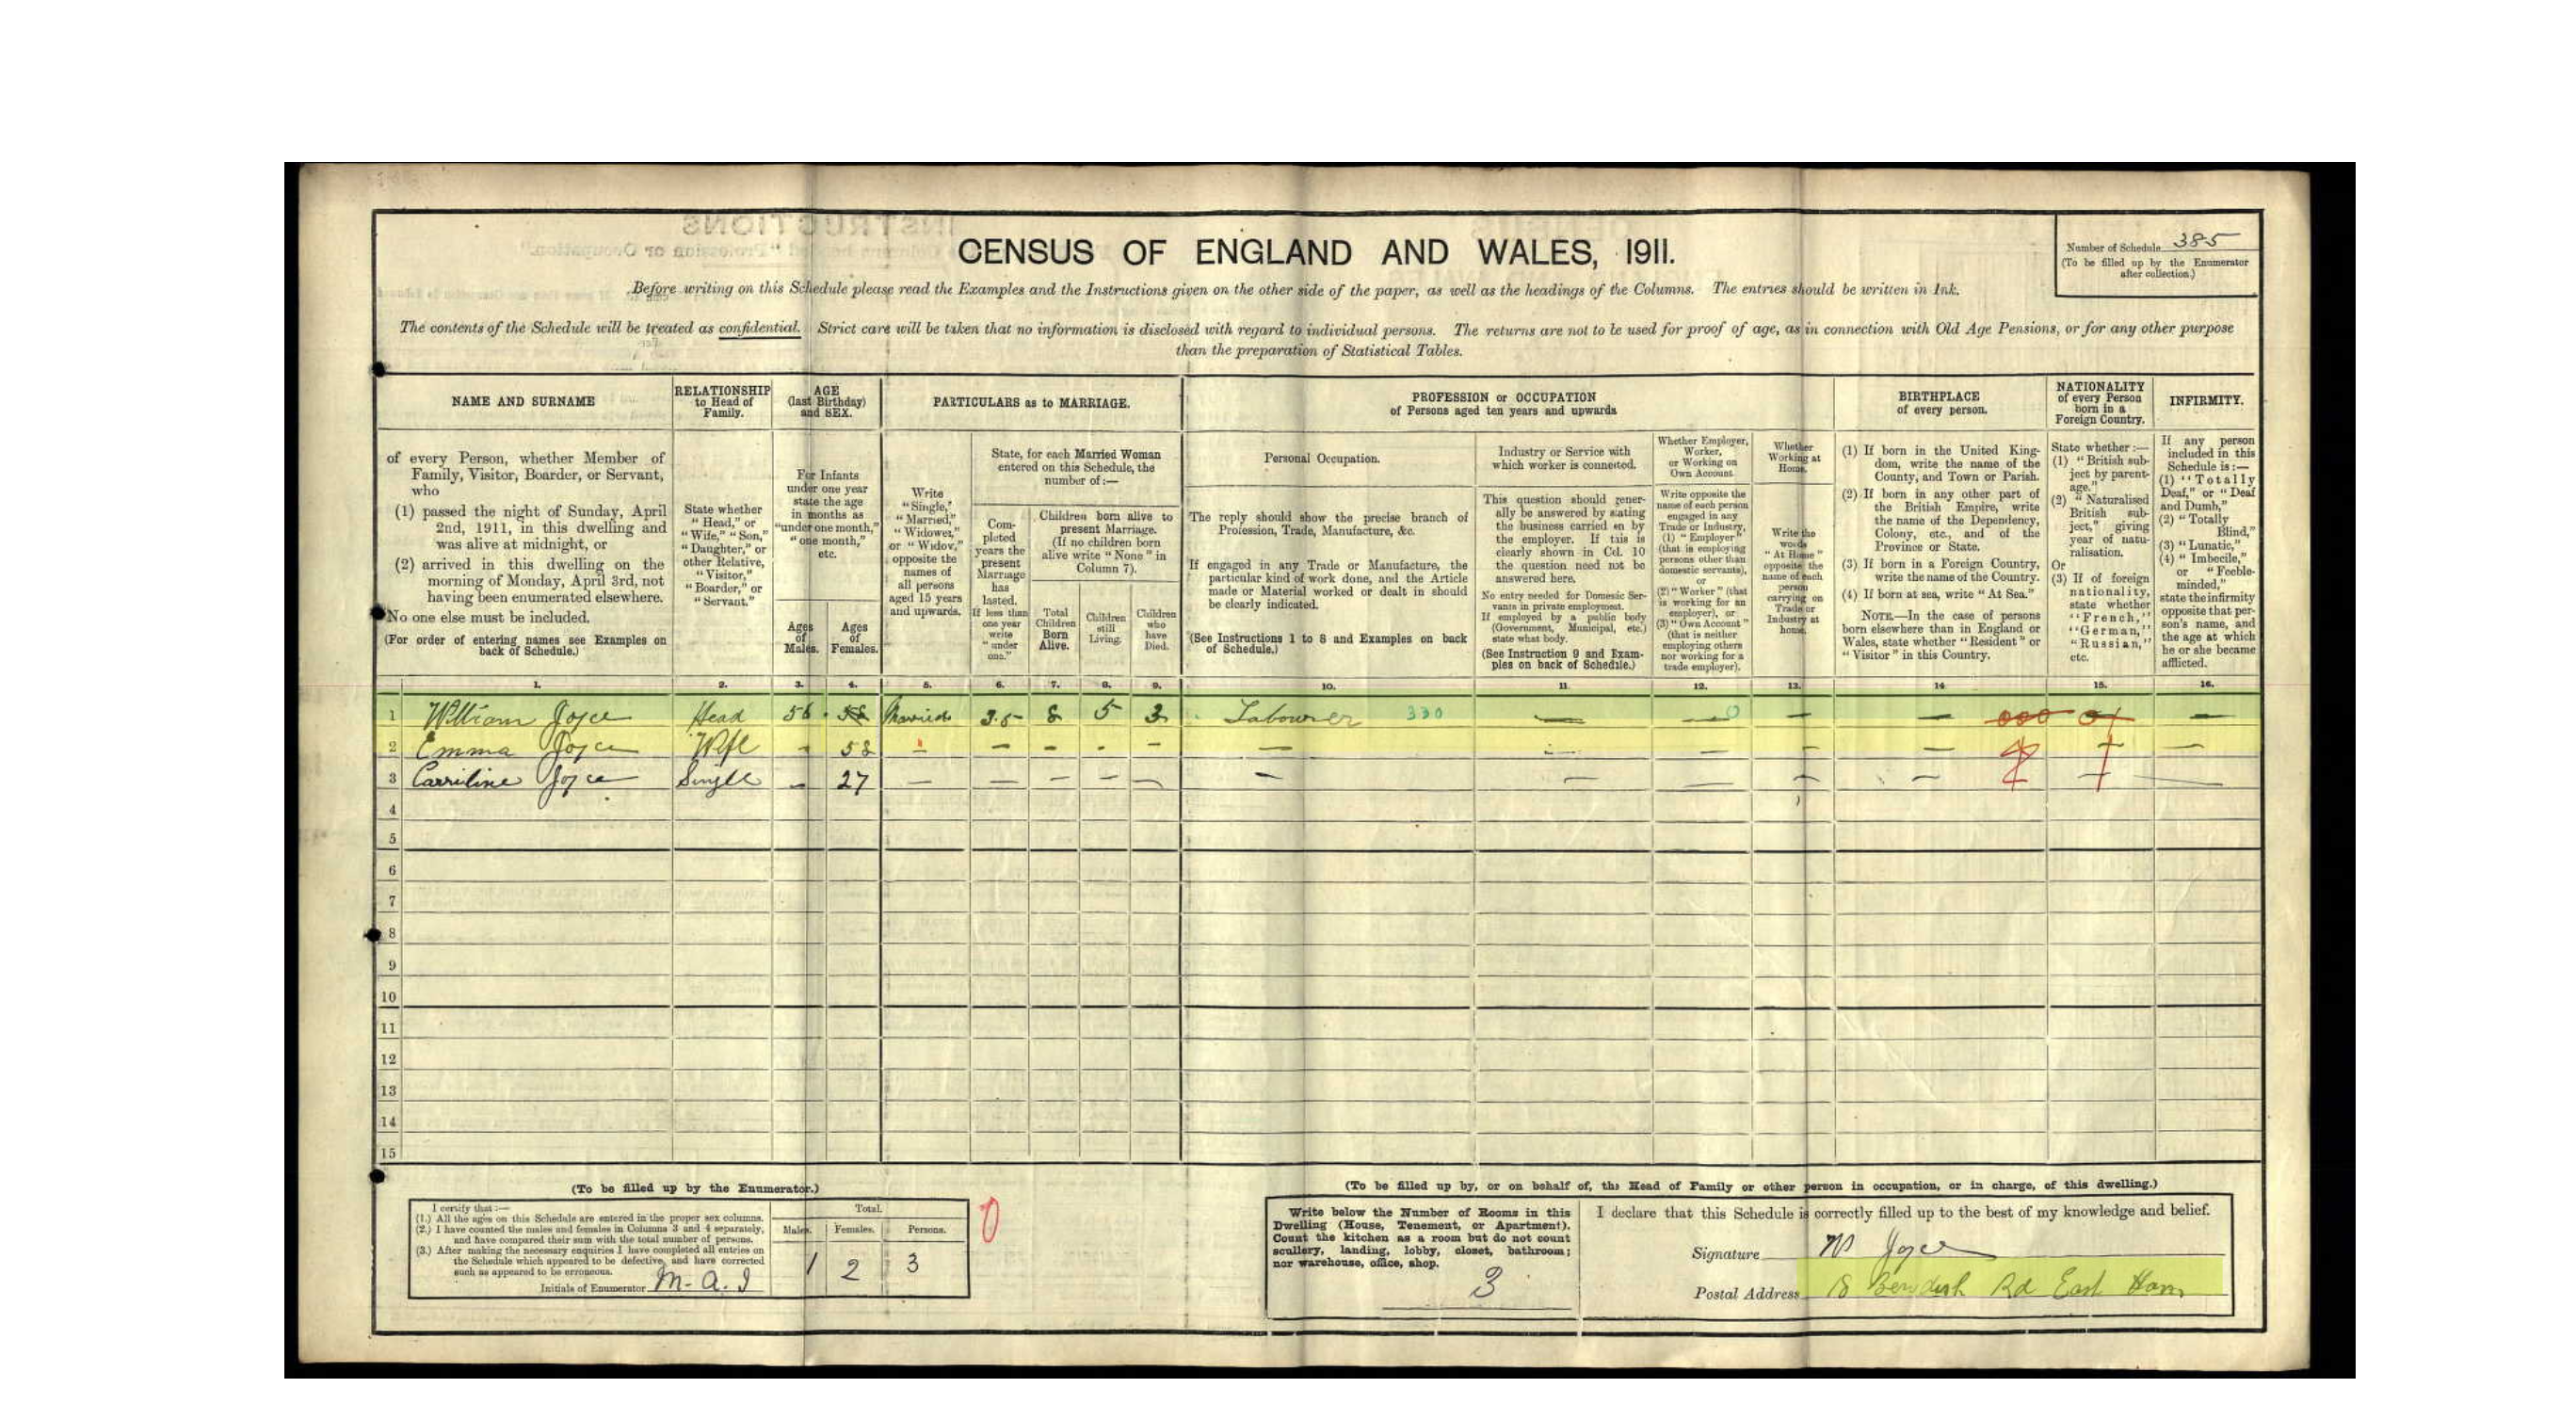 CENSUS OF ENGLAND AND WALES, 1911.
Number of Schedule 385
(To be filled up by the Enumerator
after collection.)
Before writing on this Schedule please read the Examples and the Instructions given on the other side of the paper, as well as the headings of the Columns. The entries should be written in Ink.
The contents of the Schedule will be treated as confidential. Strict care will be taken that no information is disclosed with regard to individual persons. The returns are not to be used for proof of age, as in connection with Old Age Pensions, or for any other purpose
than the preparation of Statistical Tables.
NAME AND SURNAME
of every Person, whether Member of
Family, Visitor, Boarder, or Servant,
who
(1) passed the night of Sunday, April
2nd, 1911, in this dwelling and
was alive at midnight, or
(2) arrived in this dwelling on the
morning of Monday, April 3rd, not
having been enumerated elsewhere.
No one else must be included.
(For order of entering names see Examples on
back of Schedule.)
RELATIONSHIP
to Head of
Family.
State whether
"Head," or
"Wife," "Son,"
"Daughter," or
other Relative,
"Visitor,"
"Boarder," or
"Servant."
AGE
(last Birthday)
and SEX.
For Infants
under one year
state the age
in months as
"under one month,"
"one month,"
etc.
Ages
of
Males.
Ages
of
Females.
PARTICULARS as to MARRIAGE.
Write
"Single,"
"Married,"
"Widower,"
or "Widow,"
opposite the
names of
all persons
aged 15 years
and upwards.
State, for each Married Woman
entered on this Schedule, the
number of:—
Com-
pleted
years the
present
Marriage
has
lasted.
If less than
one year
write
"under
one."
Children born alive to
present Marriage.
(If no children born
alive write "None" in
Column 7).
Total
Children
Born
Alive.
Children
still
Living.
Children
who
have
Died.
PROFESSION or OCCUPATION
of Persons aged ten years and upwards
Personal Occupation.
The reply should show the precise branch of
Profession, Trade, Manufacture, &c.
If engaged in any Trade or Manufacture, the
particular kind of work done, and the Article
made or Material worked or dealt in should
be clearly indicated.
(See Instructions 1 to 8 and Examples on back
of Schedule.)
Industry or Service with
which worker is connected.
This question should gener-
ally be answered by stating
the business carried on by
the employer. If this is
clearly shown in Col. 10
the question need not be
answered here.
No entry needed for Domestic Ser-
vants in private employment.
If employed by a public body
(Government, Municipal, etc.)
state what body.
(See Instruction 9 and Exam-
ples on back of Schedule.)
Whether Employer,
Worker,
or Working on
Own Account.
Write opposite the
name of each person
engaged in any
Trade or Industry,
(1) "Employer"
(that is employing
persons other than
domestic servants),
or
(2) "Worker" (that
is working for an
employer), or
(3) "Own Account"
(that is neither
employing others
nor working for a
trade employer).
Whether
Working at
Home.
Write the
words
"At Home"
opposite the
name of each
person
carrying on
Trade or
Industry at
home.
BIRTHPLACE
of every person.
(1) If born in the United King-
dom, write the name of the
County, and Town or Parish.
(2) If born in any other part of
the British Empire, write
the name of the Dependency,
Colony, etc., and of the
Province or State.
(3) If born in a Foreign Country,
write the name of the Country.
(4) If born at sea, write "At Sea."
NOTE.—In the case of persons
born elsewhere than in England or
Wales, state whether "Resident" or
"Visitor" in this Country.
NATIONALITY
of every Person
born in a
Foreign Country.
State whether:—
(1) "British sub-
ject by parent-
age."
(2) "Naturalised
British sub-
ject," giving
year of natu-
ralisation.
Or
(3) If of foreign
nationality,
state whether
"French,"
"German,"
"Russian,"
etc.
INFIRMITY.
If any person
included in this
Schedule is:—
(1) "Totally
Deaf," or "Deaf
and Dumb,"
(2) "Totally
Blind,"
(3) "Lunatic,"
(4) "Imbecile,"
or "Feeble-
minded,"
state the infirmity
opposite that per-
son's name, and
the age at which
he or she became
afflicted.
1. 2. 3. 4. 5. 6. 7. 8. 9. 10. 11. 12. 13. 14. 15. 16.
1 William Joyce Head 56 58 Married 35 8 5 3 Labourer 330 — 0 — — 000 01 —
2 Emma Joyce Wife - 58 - - - - - — — — — — —
3 Carriline Joyce Single - 27 — — — — — — — — — — —
4
5
6
7
8
9
10
11
12
13
14
15
(To be filled up by the Enumerator.)
I certify that:—
(1.) All the ages on this Schedule are entered in the proper sex columns.
(2.) I have counted the males and females in Columns 3 and 4 separately,
and have compared their sum with the total number of persons.
(3.) After making the necessary enquiries I have completed all entries on
the Schedule which appeared to be defective, and have corrected
such as appeared to be erroneous.
Initials of Enumerator M. A. J
Total.
Males. Females. Persons.
1 2 3
0
(To be filled up by, or on behalf of, the Head of Family or other person in occupation, or in charge, of this dwelling.)
Write below the Number of Rooms in this
Dwelling (House, Tenement, or Apartment).
Count the kitchen as a room but do not count
scullery, landing, lobby, closet, bathroom;
nor warehouse, office, shop.
3
I declare that this Schedule is correctly filled up to the best of my knowledge and belief.
Signature W Joyce
Postal Address 18 Bendish Rd East Ham